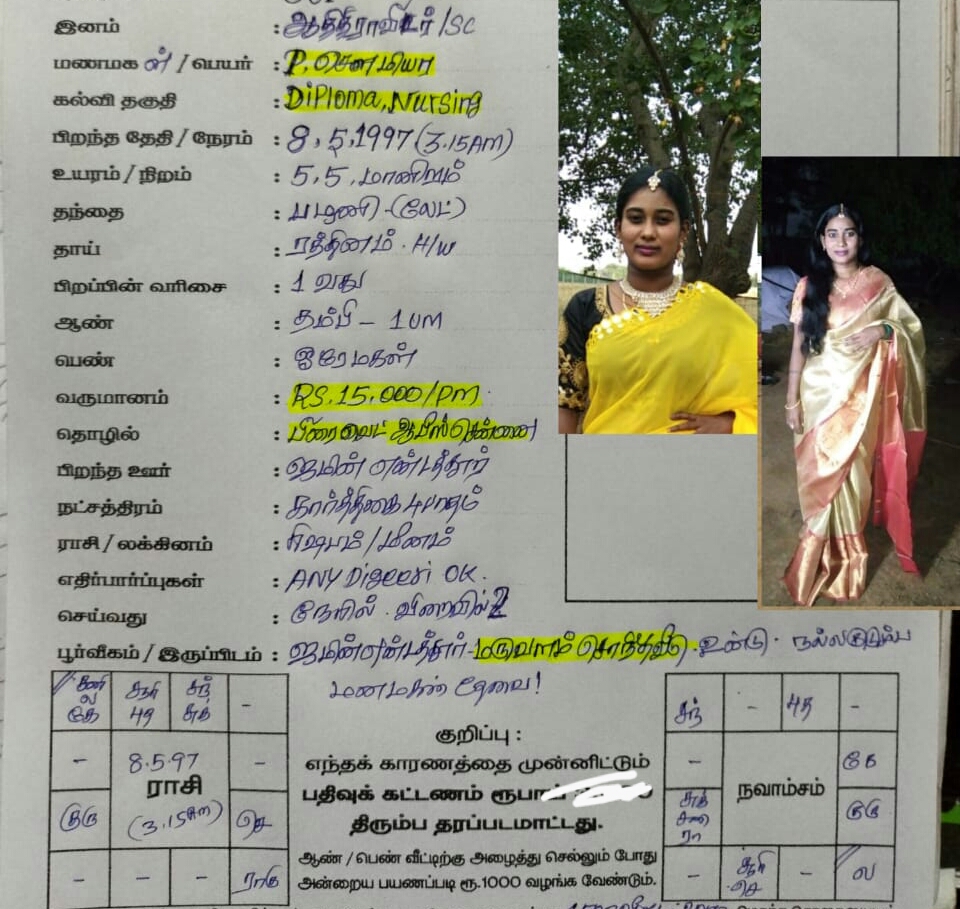 இனம் : ஆதிதிராவிடர் /SC
மணமகள் / பெயர் : P.
கல்வி தகுதி : Diploma, Nursing
பிறந்த தேதி / நேரம் : 8,5,1997 (3.15Am)
உயரம் / நிறம் : 5,5, மாநிறம்
தந்தை : பழனி - (லேட்)
தாய் : ரத்தினம் . H/W
பிறப்பின் வரிசை : 1 வது
ஆண் : தம்பி - 1
பெண் : ஒரே மகள்
வருமானம் : RS. 15,000/Pm.
தொழில் : பிரைவேட் ஆபீஸ் சென்னை
பிறந்த ஊர் : ஜமின் எண்டத்தூர்
நட்சத்திரம் : கார்த்திகை 4 பாதம்
ராசி / லக்கினம் : ரிஷபம் / மீனம்
எதிர்பார்ப்புகள் : ANY OK.
செய்வது : நேரில்
பூர்வீகம் / இருப்பிடம் : ஜமின் எண்டத்தூர் - உண்டு . நல்ல
மணமகன் தேவை!
சனி ல கே சூரி சந் சுக் -
- 8.5.97 -
ராசி
குரு (3.15Am) செ
- - - ராகு
குறிப்பு :
எந்தக் காரணத்தை முன்னிட்டும்
பதிவுக் கட்டணம் ரூபாய்
திரும்ப தரப்படமாட்டது.
ஆண் / பெண் வீட்டிற்கு அழைத்து செல்லும் போது
அன்றைய பயணப்படி ரூ.1000 வழங்க வேண்டும்.
சந் - -
- கே
நவாம்சம்
சுக் சனி ரா குரு
- சூரி செ - ல